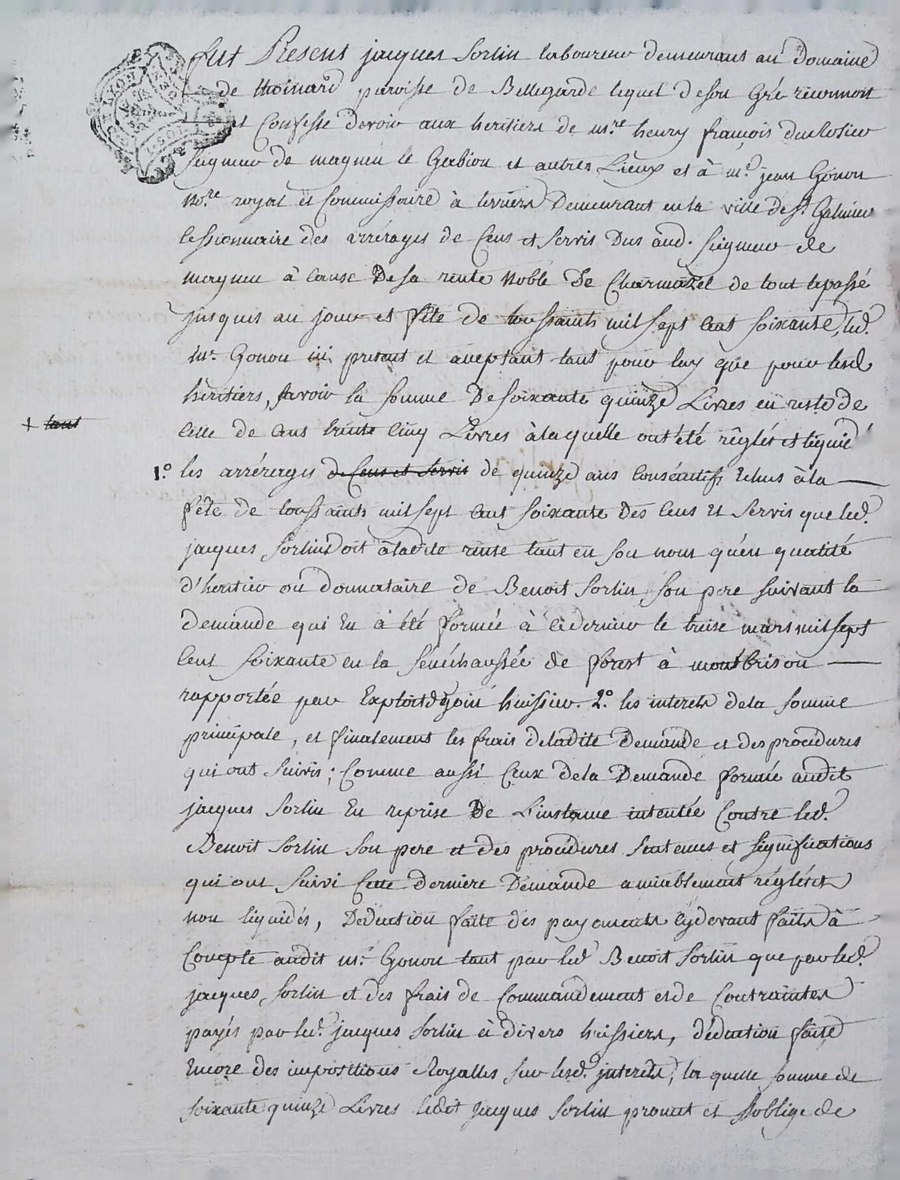 Fut Present jacques Sorlin laboureur demeurant au Domaine
de paroisse de Bellegarde lequel de son Gré reconnoit
LYON
et Confesse devoir aux heritiers de mre henry françois duclosier
seigneur de magneu le Gabion et autres Lieux et à me. jean Gonon
Nore. royal et Commissaire à terriers Demeurant en la ville de St. Galmier
Cessionnaire des arrérages de Cens et servis Dus aud. seigneur de
magneu à Cause De sa rente Noble de Charmazel de tout le passé
jusquis au jour et fête de toussaints mil sept Cent soixante, led.
me. Gonon ici present et aceptant tant pour luy que pour lesd
heritiers, savoir la somme De soixante quinze Livres en reste de
+ tant
Celle de Cent trente Cinq Livres à laquelle ont été réglés et liquidé
1.° les arrérages de Cens et servis de quinze ans Consécutifs Echus à la
fête de toussaints mil sept Cent soixante Des Cens Et servis que led.
jacques Sorlin Doit à ladite rente tant en son nom qu'en qualité
d'heritier ou donnataire de Benoit Sorlin son pere suivant la
demande qui En à été formée à ce dernier le treise mars mil sept
Cent soixante en la sénéchaussée de forest à montbrison
rapportée par Exploit de huissier. 2.° les interets de la somme
principale, et finalement les frais de ladite Demande et des procédures
qui ont suivis; Comme aussi Ceux de la Demande formée audit
jacques Sorlin En reprise De L'instance intentée Contre led.
Benoit Sorlin son pere et des procédures sentences et significations
qui ont suivi Cette derniere Demande amiablement réglés et
non liquidés, Déduction faite des payements cy devant faits à
Compte audit me. Gonon tant par led Benoit Sorlin que par led.
jacques Sorlin et des frais de Commandement et de Contraintes
payés par led. jacques Sorlin à divers huissiers, déduction faite
Encore des impositions Royalles sur lesd. interets, la quelle somme de
soixante quinze Livres ledit jacques Sorlin promet et s'oblige de